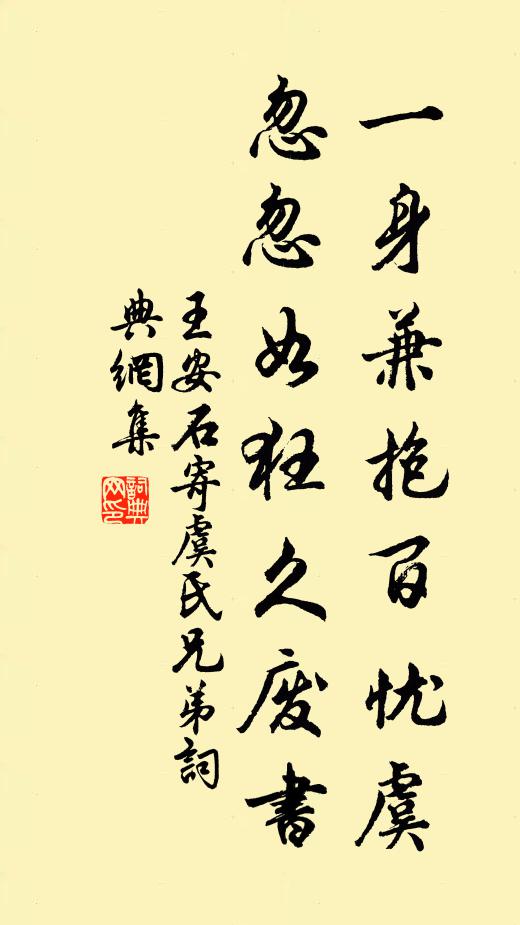 一身兼抱百忧虞
忽忽如狂久废書
王安石寄虞氏兄弟詞
典網集
詞典
网印